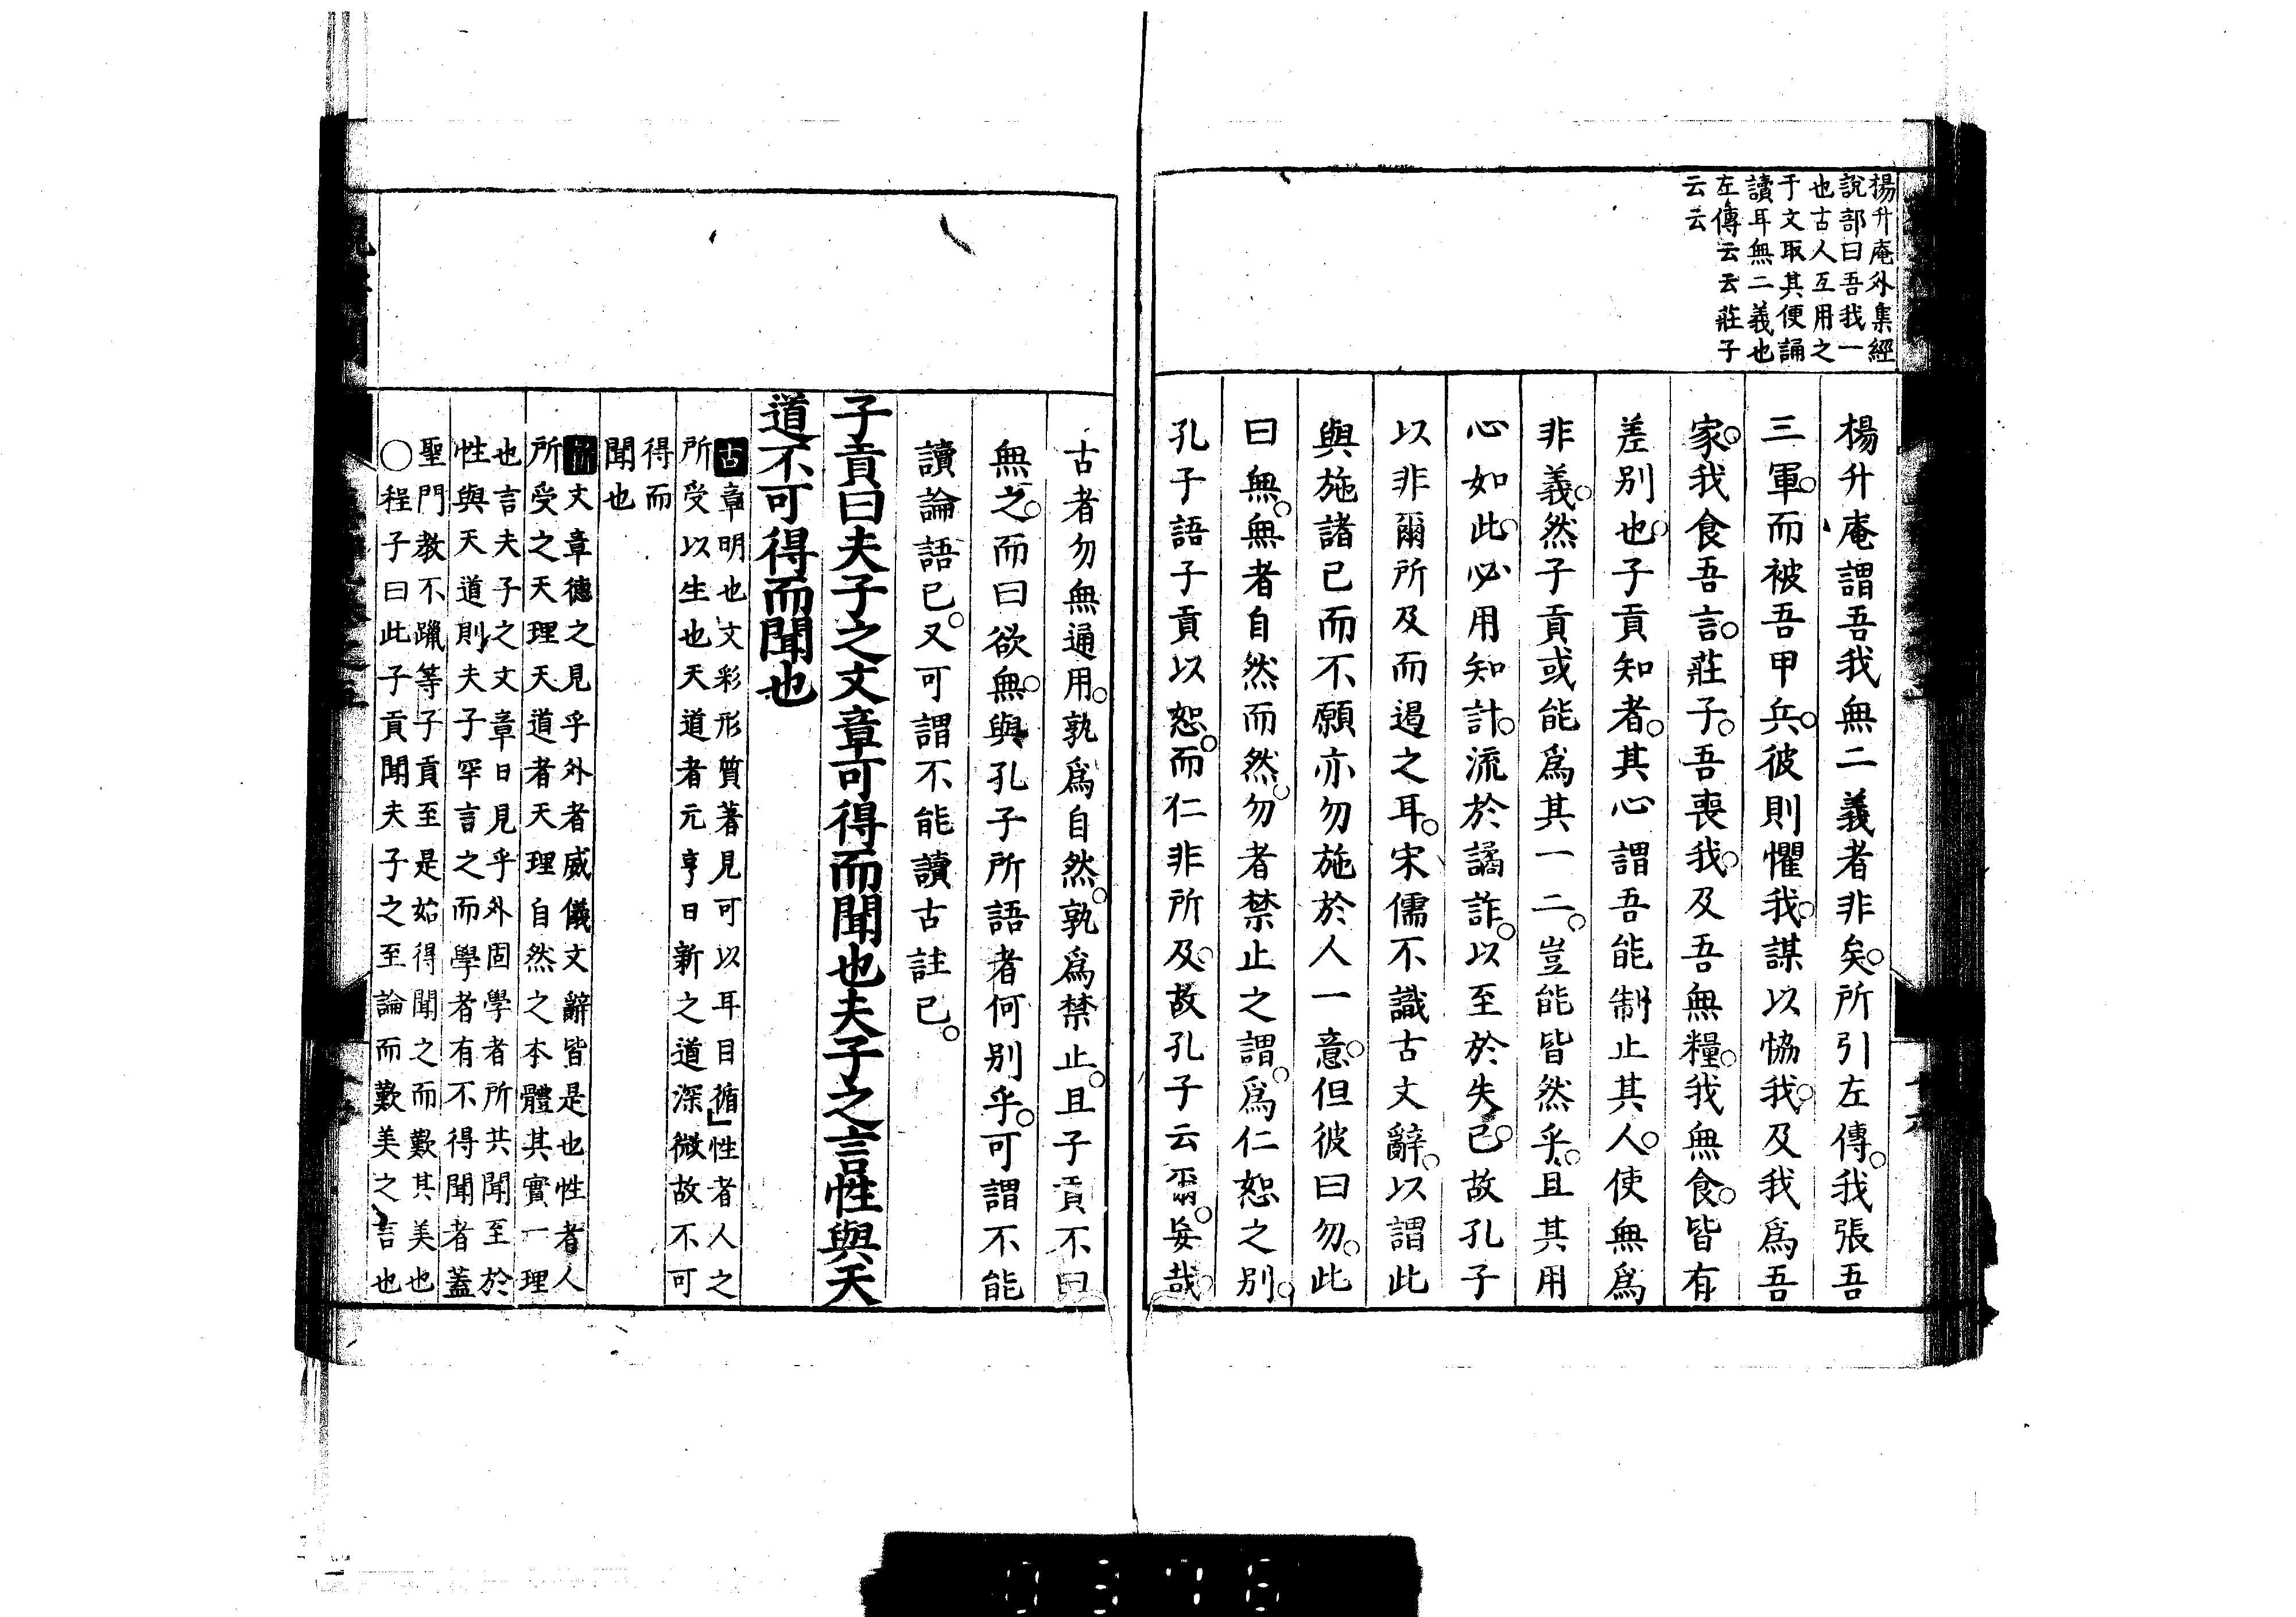 楊升庵外集經
說部曰吾我一
也古人互用之
于文取其便誦
讀耳無二義也
左傳云云莊子
云云
楊升庵謂吾我無二義者非矣。所引左傳。我張吾
三軍。而被吾甲兵。彼則懼我。謀以恊我。及我爲吾
家。我食吾言。莊子。吾喪我。及吾無糧。我無食。皆有
差别也。子貢知者。其心謂吾能制止其人。使無爲
非義。然子貢或能爲其一二。豈能皆然乎。且其用
心如此。必用知計。流於譎詐。以至於失己。故孔子
以非爾所及而遏之耳。宋儒不識古文辭。以謂此
與施諸己而不願亦勿施於人一意。但彼曰勿。此
曰無。無者自然而然。勿者禁止之謂。爲仁恕之别。
孔子語子貢以恕。而仁非所及。故孔子云爾。妄哉。
古者勿無通用。孰爲自然。孰爲禁止。且子貢不曰
無之。而曰欲無。與孔子所語者何别乎。可謂不能
讀論語已。又可謂不能讀古註已。
子貢曰夫子之文章可得而聞也夫子之言性與天
道不可得而聞也
古章明也文彩形質著見可以耳目循」性者人之
所受以生也天道者元亨日新之道深微故不可
得而
聞也
新文章德之見乎外者威儀文辭皆是也性者人
所受之天理天道者天理自然之本體其實一理
也言夫子之文章日見乎外固學者所共聞至於
性與天道則夫子罕言之而學者有不得聞者蓋
聖門教不躐等子貢至是始得聞之而歎其美也
○程子曰此子貢聞夫子之至論而歎美之言也
0378